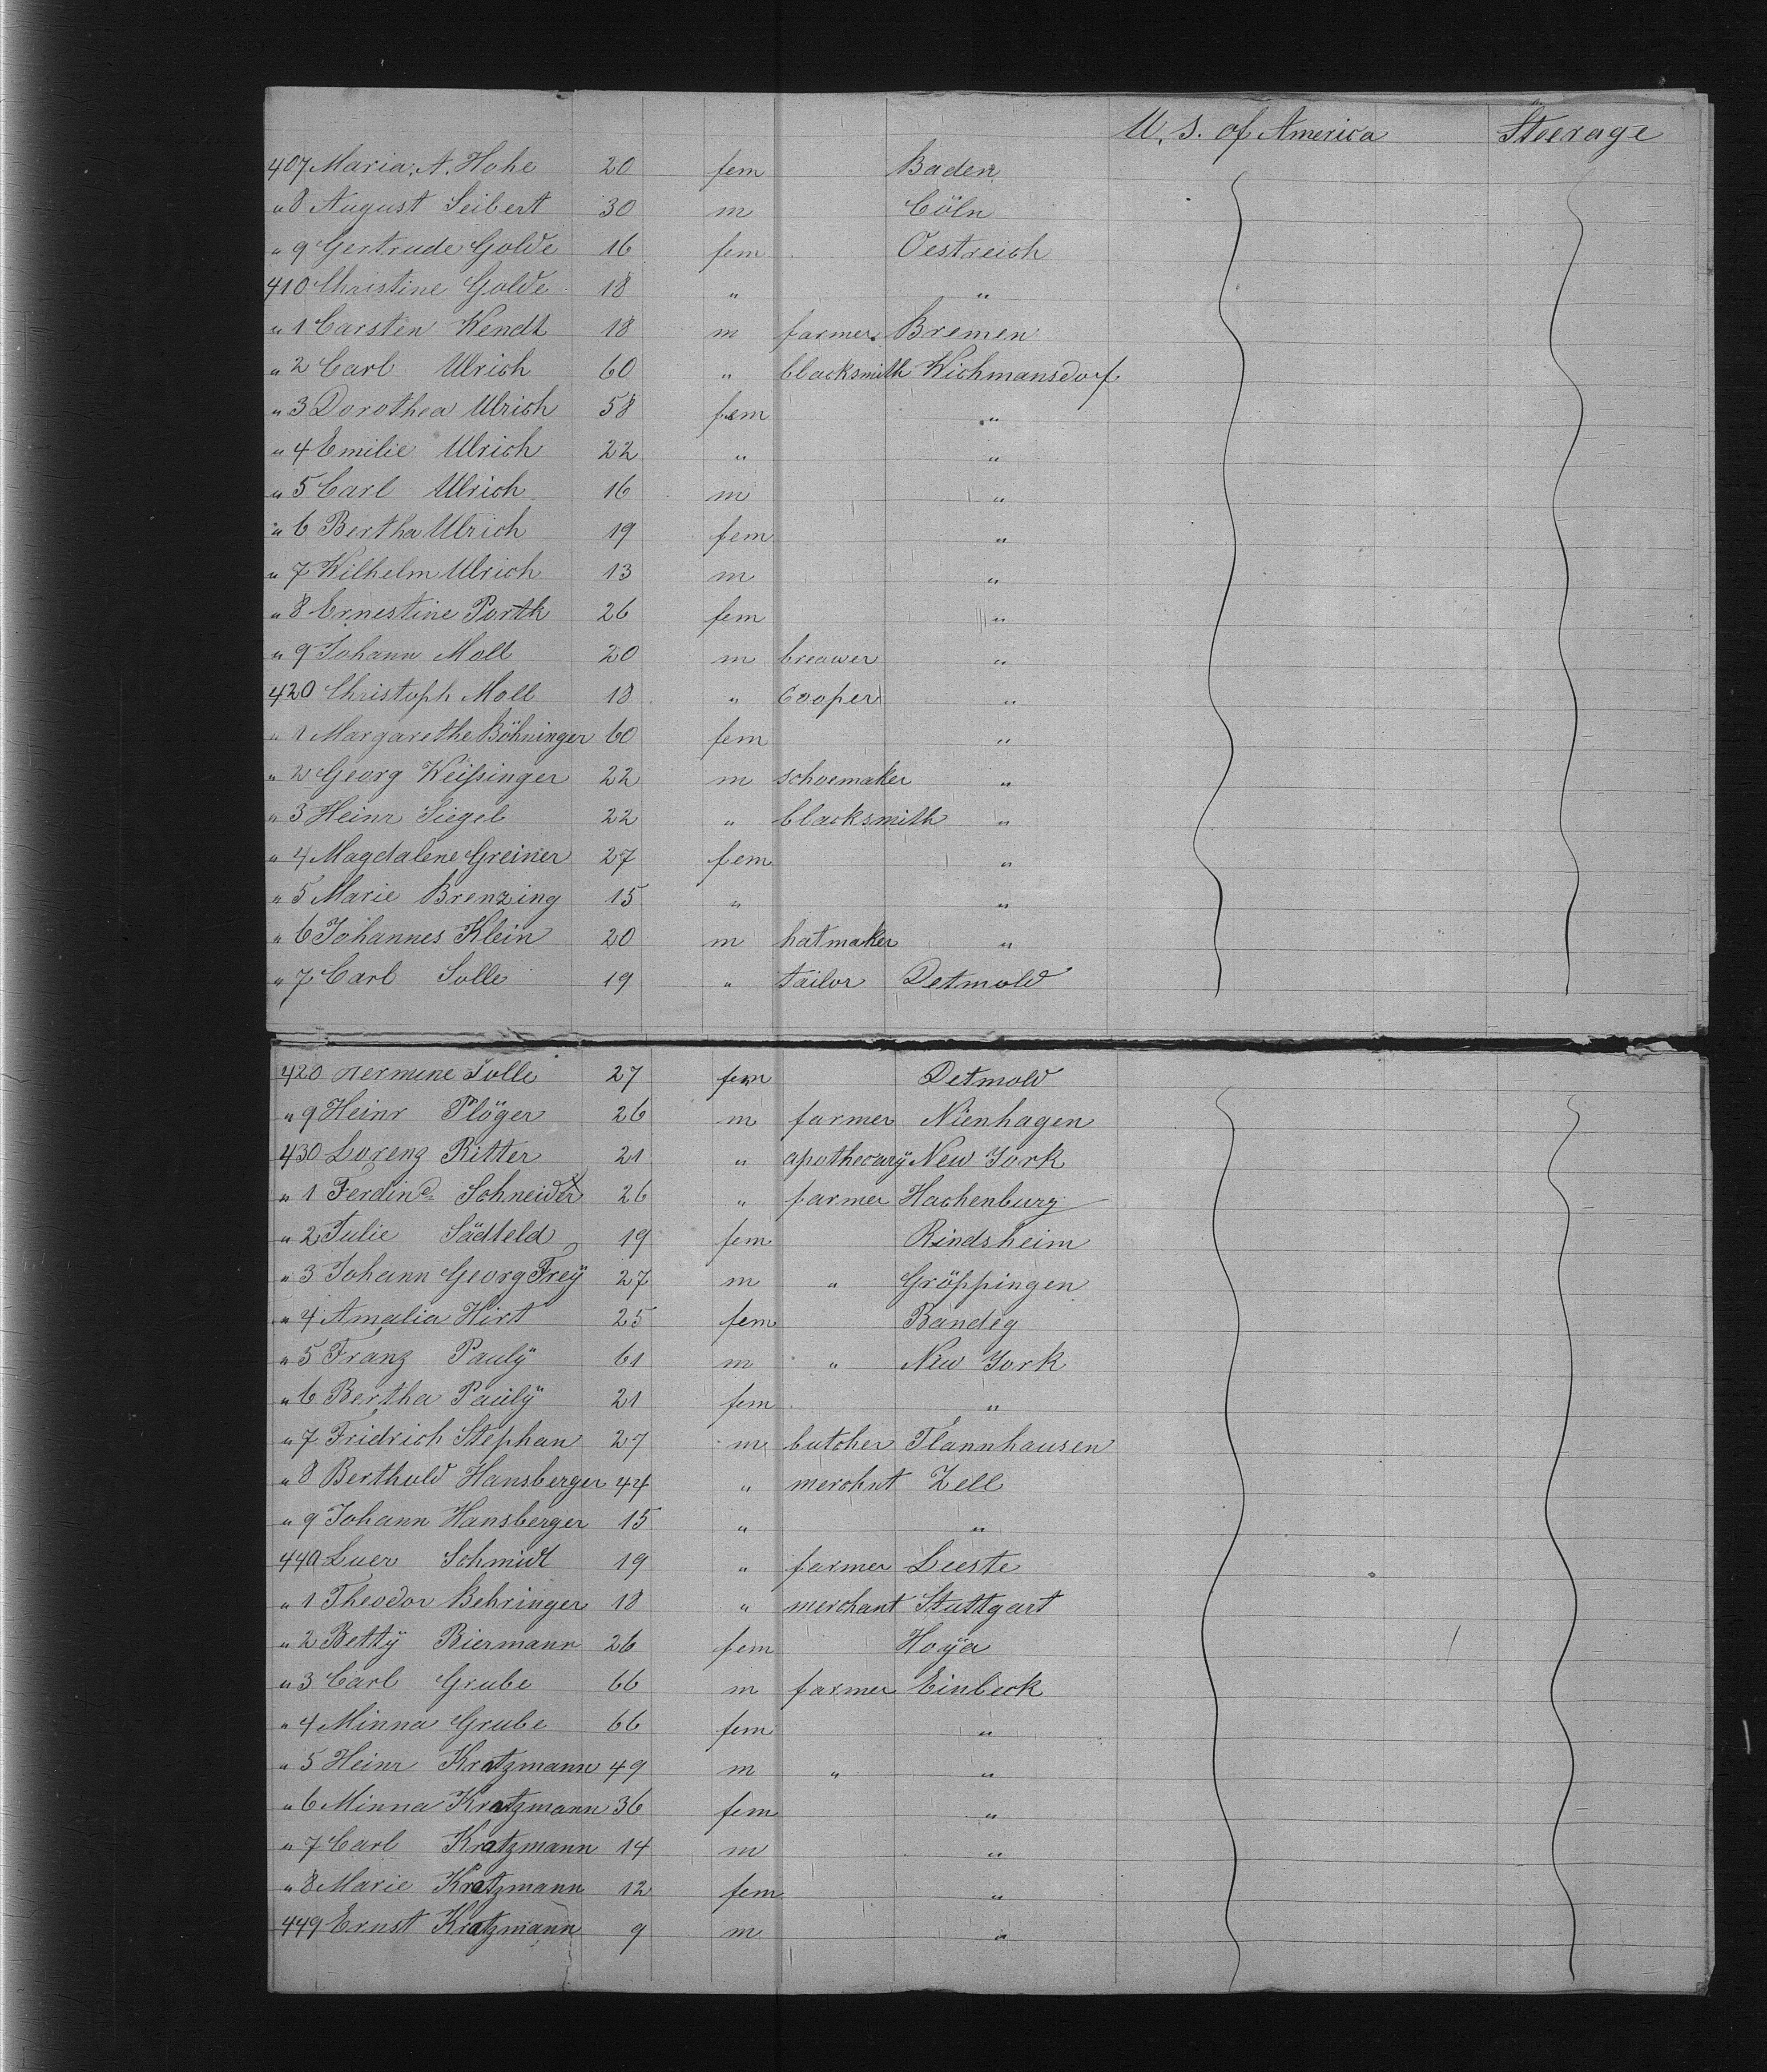 U. S. of America Steerage
407 Maria A. Hohe 20 fem Baden
" 8 August Seibert 30 m Cöln
" 9 Gertrude Golde 16 fem Oestreich
410 Christine Golde 18 " "
" 1 Carsten Wendt 18 m farmer Bremen
" 2 Carl Ulrich 60 " blacksmith Wichmansdorf
" 3 Dorothea Ulrich 58 fem "
" 4 Emilie Ulrich 22 " "
" 5 Carl Ulrich 16 m "
" 6 Bertha Ulrich 19 fem "
" 7 Wilhelm Ulrich 13 m "
" 8 Ernestine Porth 26 fem "
" 9 Johann Moll 20 m breawer "
420 Christoph Moll 18 " Cooper "
" 1 Margarethe Böhninger 60 fem "
" 2 Georg Weißinger 22 m schoemaker "
" 3 Heinr Siegel 22 " blacksmith "
" 4 Magdalene Greiner 27 fem "
" 5 Marie Brenzing 15 " "
" 6 Johannes Klein 20 m hatmaker "
" 7 Carl Solle 19 " tailor Detmold
428 Hermine Solle 27 fem Detmold
" 9 Heinr Plöger 26 m farmer Nienhagen
430 Lorenz Ritter 21 " apothecary New York
" 1 Ferdind Schneider 26 " farmer Hachenburg
" 2 Julie 19 fem Rindsheim
" 3 Johann Georg Frey 27 m " Gröppingen
" 4 Amalia Hirt 25 fem Bandeg
" 5 Franz Pauly 61 m " New York
" 6 Bertha Pauly 21 fem "
" 7 Fridrich Stephan 27 m butcher Tlannhausen
" 8 Berthold Hansberger 44 " merchnt Zell
" 9 Johann Hansberger 15 " "
440 Luer Schmidt 19 " farmer Leeste
" 1 Theodor Behringer 18 " merchant Stuttgart
" 2 Betty Biermann 26 fem Hoya
" 3 Carl Grube 66 m farmer Einbeck
" 4 Minna Grube 66 fem "
" 5 Heinr Kratzmann 49 m " "
" 6 Minna Kratzmann 36 fem "
" 7 Carl Kratzmann 14 m "
" 8 Marie Kratzmann 12 fem "
449 Ernst Kratzmann 9 m "